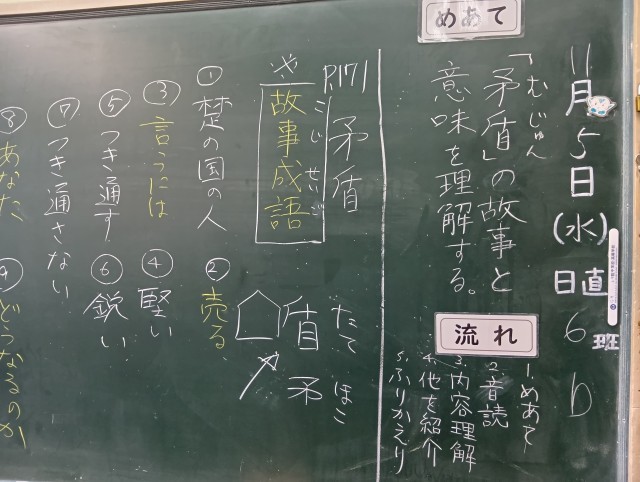 11月5日(水)
日直 6班 b
めあて
むじゅん
「矛盾」の故事と
意味を理解する。
流れ
1.めあて
2.音読
3.内容理解
4.他を紹介
5.ふりかえり
P.171 矛盾
たて ほこ
盾 矛
※故事成語
こじせいご
①楚の国の人
②売る
③言うには
④堅い
⑤つき通す
⑥鋭い
⑦つき通さない
⑧あなた
⑨どうなるのか